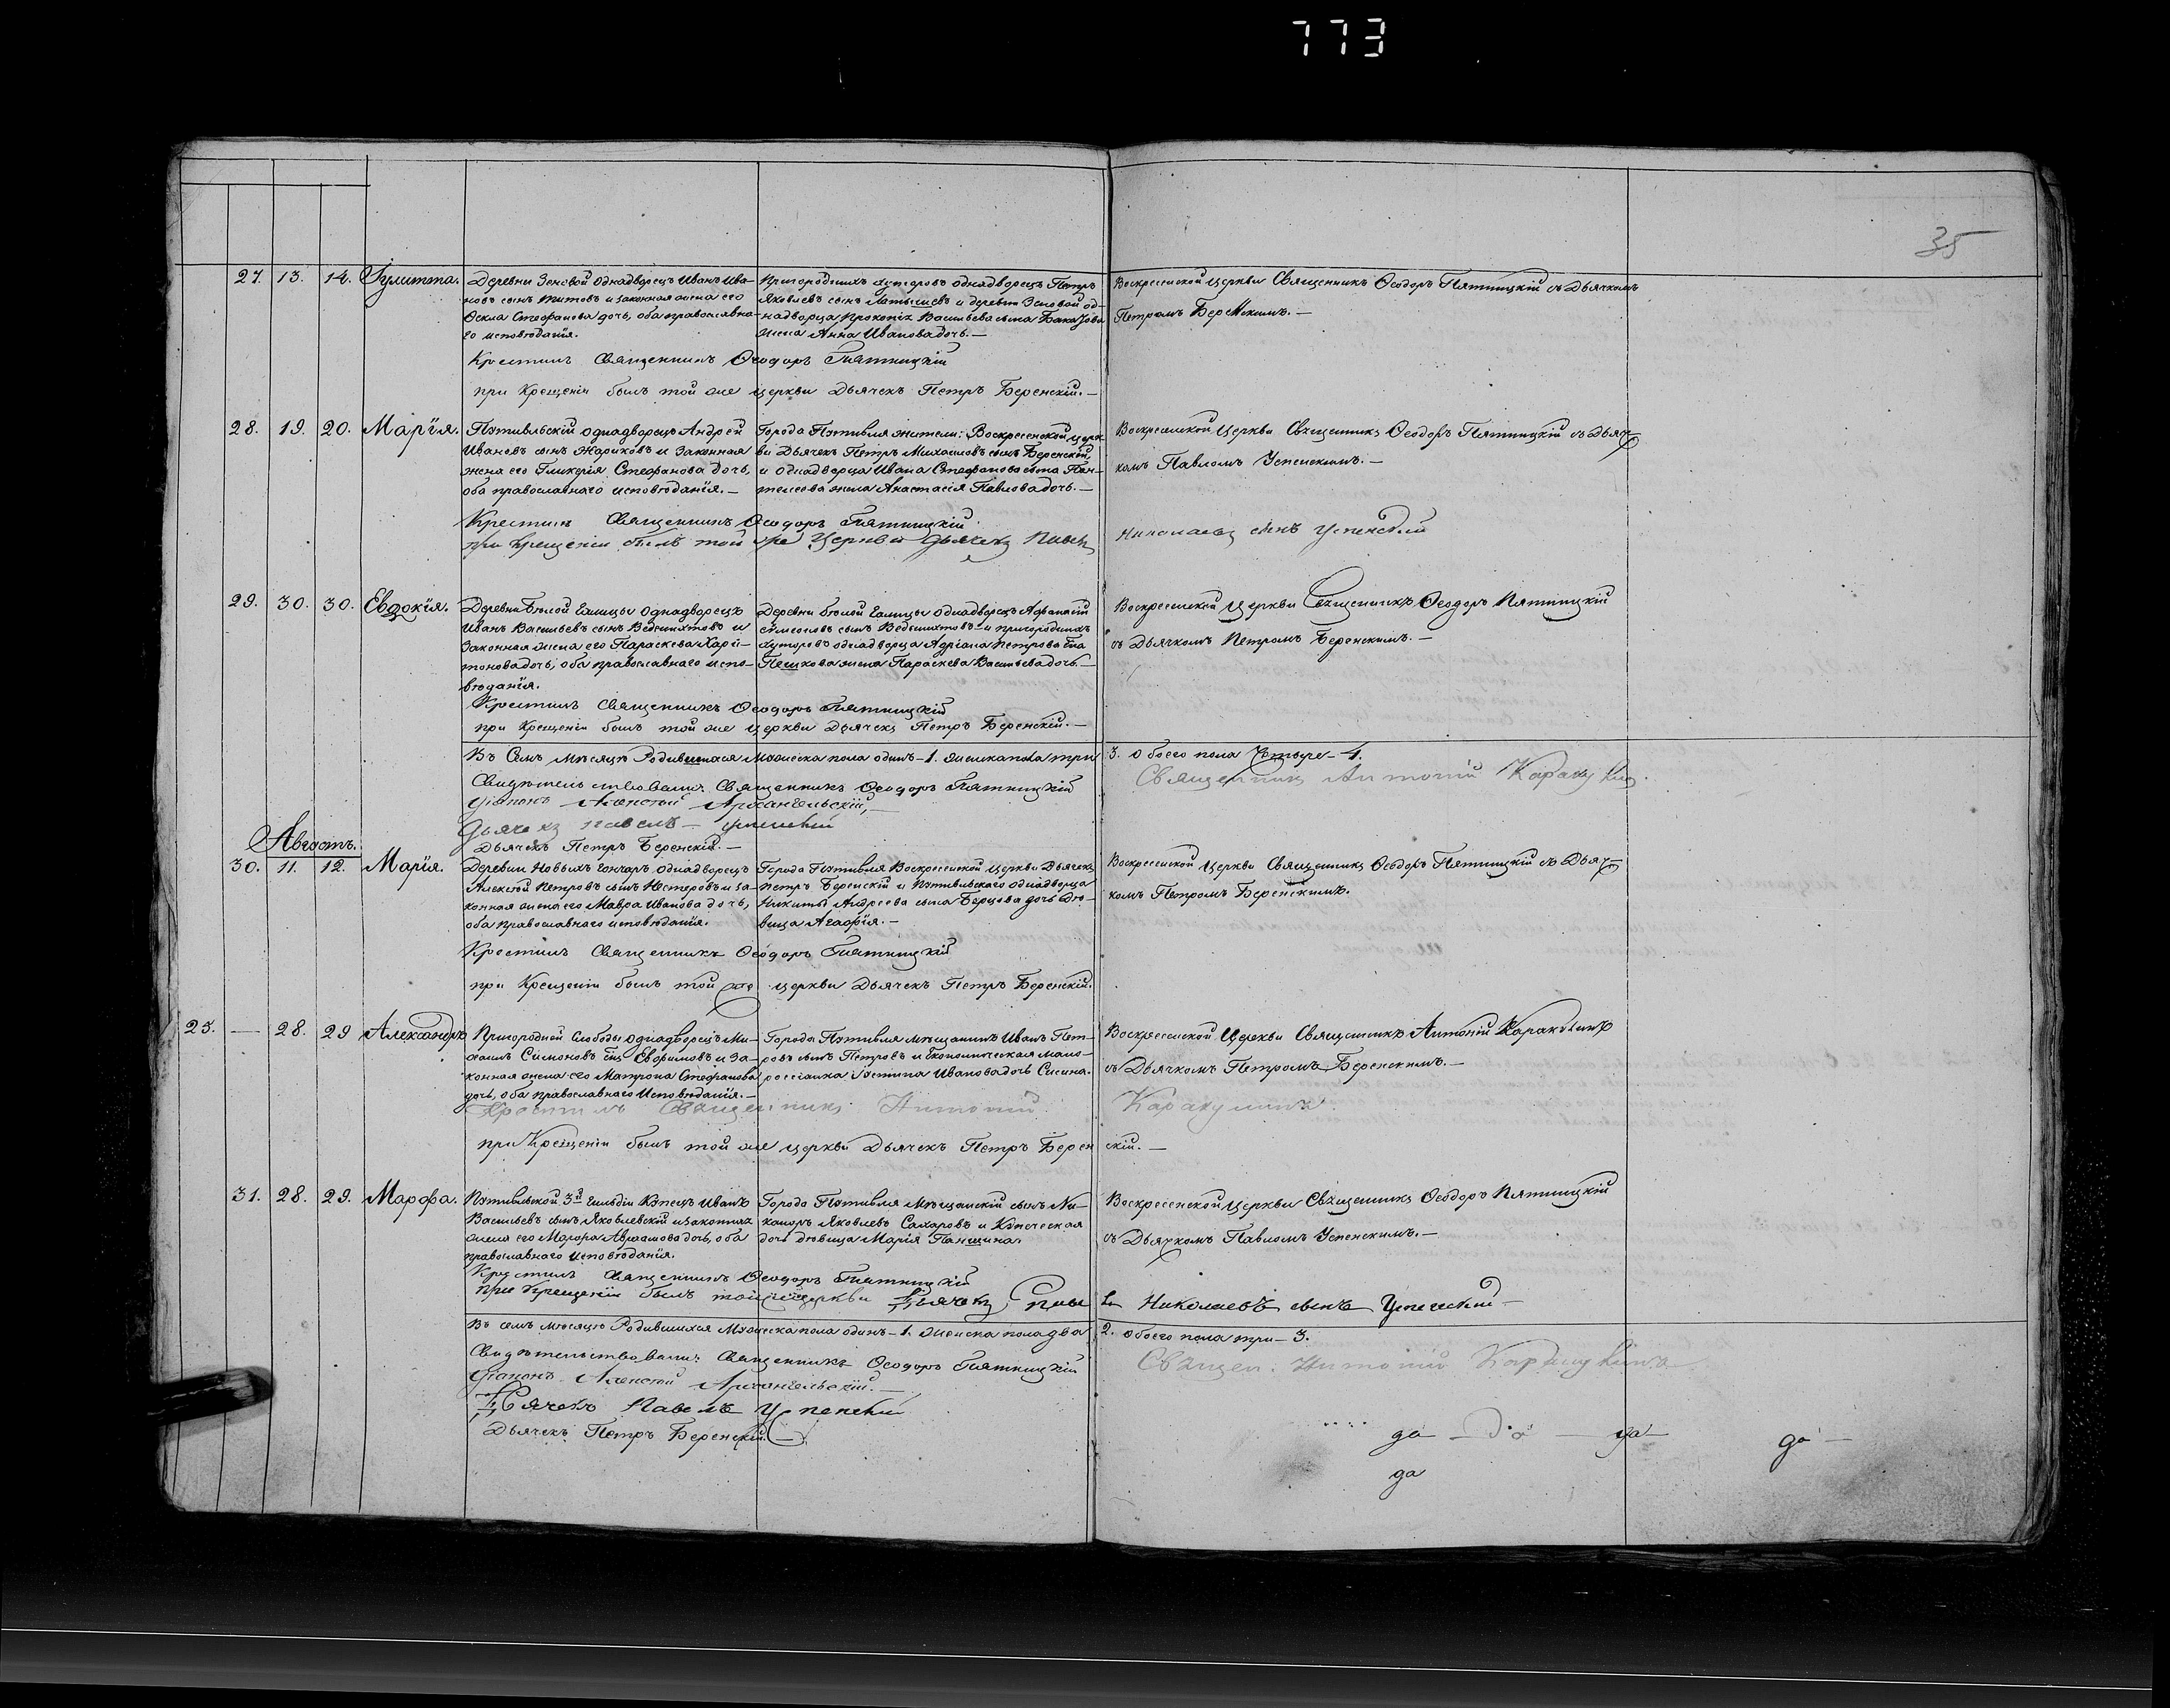 773
35
27. 13. 14. Іулитта.
Деревни Зеновой однадворецъ Иванъ Ива-
новъ сынъ Титовъ и законная жена его
Ѳекла Стефанова дочь, оба православна-
го исповѣданія.
Пригородныхъ хуторовъ однадворецъ Петръ
Яковлевъ сынъ Латышевъ и деревни Зеновой од-
надворца Прокопія Васильева сына
жена Анна Иванова дочь.—
Воскресенской церкви Священникъ Ѳеодоръ Пятницкій съ Дьячкомъ
Петромъ Беренскимъ.—
Крестилъ Священникъ Ѳеодоръ Пятницкій
при Крещеніи былъ той же церкви Дьячекъ Петръ Беренскій.—
28. 19. 20. Марія.
Пѹтивльскій однадворецъ Андрей
Ивановъ сынъ Жариковъ и законная
жена его Гликерія Стефанова дочь,
оба православнаго исповѣданія.—
Города Пѹтивля жители: Воскресенской церк
ви Дьячекъ Петръ Михаиловъ сынъ Беренскій,
и однадворца Ивана Стефанова сына Пан-
телеева жена Анастасія Павлова дочь.—
Воскресенской Церкви Священникъ Ѳеодоръ Пятницкій съ Дьяч-
комъ Павломъ Успенскимъ.—
Крестилъ Священникъ Ѳеодоръ Пятницкій
при крещеніи былъ той же Церкви дьячекъ Павелъ
Николаевъ сынъ Успенский
29. 30. 30. Евдокія.
Деревни Бѣлой Галицы однадворецъ
Иванъ Васильевъ сынъ и
законная жена его Параскева Хари-
тонова дочь, оба православнаго испо-
вѣданія.
Деревни Бѣлой Галицы однадворецъ Афанасій
Симеоновъ сынъ и пригородныхъ
хуторовъ однадворца Адріана Петрова сына
Пешкова жена Параскева Васильева дочь.—
Воскресенской Церкви Священникъ Ѳеодоръ Пятницкій
съ Дьячкомъ Петромъ Беренскимъ.—
Крестилъ Священникъ Ѳеодоръ Пятницкій
при Крещеніи былъ той же церкви Дьячекъ Петръ Беренскій.—
Въ Семъ мѣсяцѣ Родившихся Мѹжеска пола одинъ—1. женска пола три 3. обоего пола Четыре—4.
Свидѣтельствовали: Священникъ Ѳеодоръ Пятницкій
Священникъ Антоній Каракулинъ.
Діаконъ Алексѣй Архангельскій,—
Дьячекъ Павелъ — Успенскій
Дьячекъ Петръ Беренскій.—
Августъ.
30. 11. 12. Марія.
Деревни Новыхъ Гончаръ однадворецъ
Алексѣй Петровъ сынъ Нестеровъ и за-
конная жена его Мавра Иванова дочь,
оба православнаго исповѣданія.
Города Пѹтивля Воскресенской Церкви Дьячекъ
Петръ Беренскій и Пѹтивльскаго однадворца
Никиты Андреева сына Берцова дочь дѣ-
вица Агафія.—
Воскресенской Церкви Священникъ Ѳеодоръ Пятницкій съ Дьяч-
комъ Петромъ Беренскимъ.
Крестилъ Священникъ Ѳеодоръ Пятницкій
при Крещеніи былъ той же церкви Дьячекъ Петръ Беренскій.
25. — 28. 29 Александръ
Пригородней Слободы однадворецъ Ми-
хаилъ Симоновъ сынъ Евфимовъ и за-
конная жена его Матрона Стефанова
дочь, оба православнаго исповѣданія.—
Города Пѹтивля мѣщанинъ Иванъ Пет-
ровъ сынъ Петровъ и Економическая мало-
россіянка Іѹстина Иванова дочь Сисина.
Воскресенской Церкви Священникъ Антоній Каракулинъ
съ Дьячкомъ Петромъ Беренскимъ.—
Крестилъ Священникъ Антоній Каракулинъ.
при Крещеніи былъ той же церкви Дьячекъ Петръ Берен скій.—
31. 28. 29. Марфа.
Пѹтивльской 3й Гильдіи Кѹпецъ Иванъ
Васильевъ сынъ Яковлевскій и законная
жена его Мавра дочь, оба
православнаго исповѣданія.
Города Пѹтивля Мѣщанскій сынъ Ни-
каноръ Яковлевъ Сахаровъ и Кѹпеческая
дочь дѣвица Марія Паншина.
Воскресенской Церкви Священникъ Ѳеодоръ Пятницкій
съ Дьячкомъ Павломъ Успенскимъ.—
Крестилъ Священникъ Ѳеодоръ Пятницкій
При Крещеніи былъ той же церкви Дьячекъ Павелъ Николаевъ сынъ Успенский—
Въ семъ мѣсяцѣ Родившихся Мѹжеска пола одинъ—1. женска пола два 2. обоего пола три—3.
Свидѣтельствовали: Священникъ Ѳеодоръ Пятницкій
Священ. Антоній Каракулинъ
Діаконъ Алексѣй Архангельскій.—
Дьячекъ Павелъ Успенскій
Дьячекъ Петръ Беренскій.—
да — да — да — да —
да